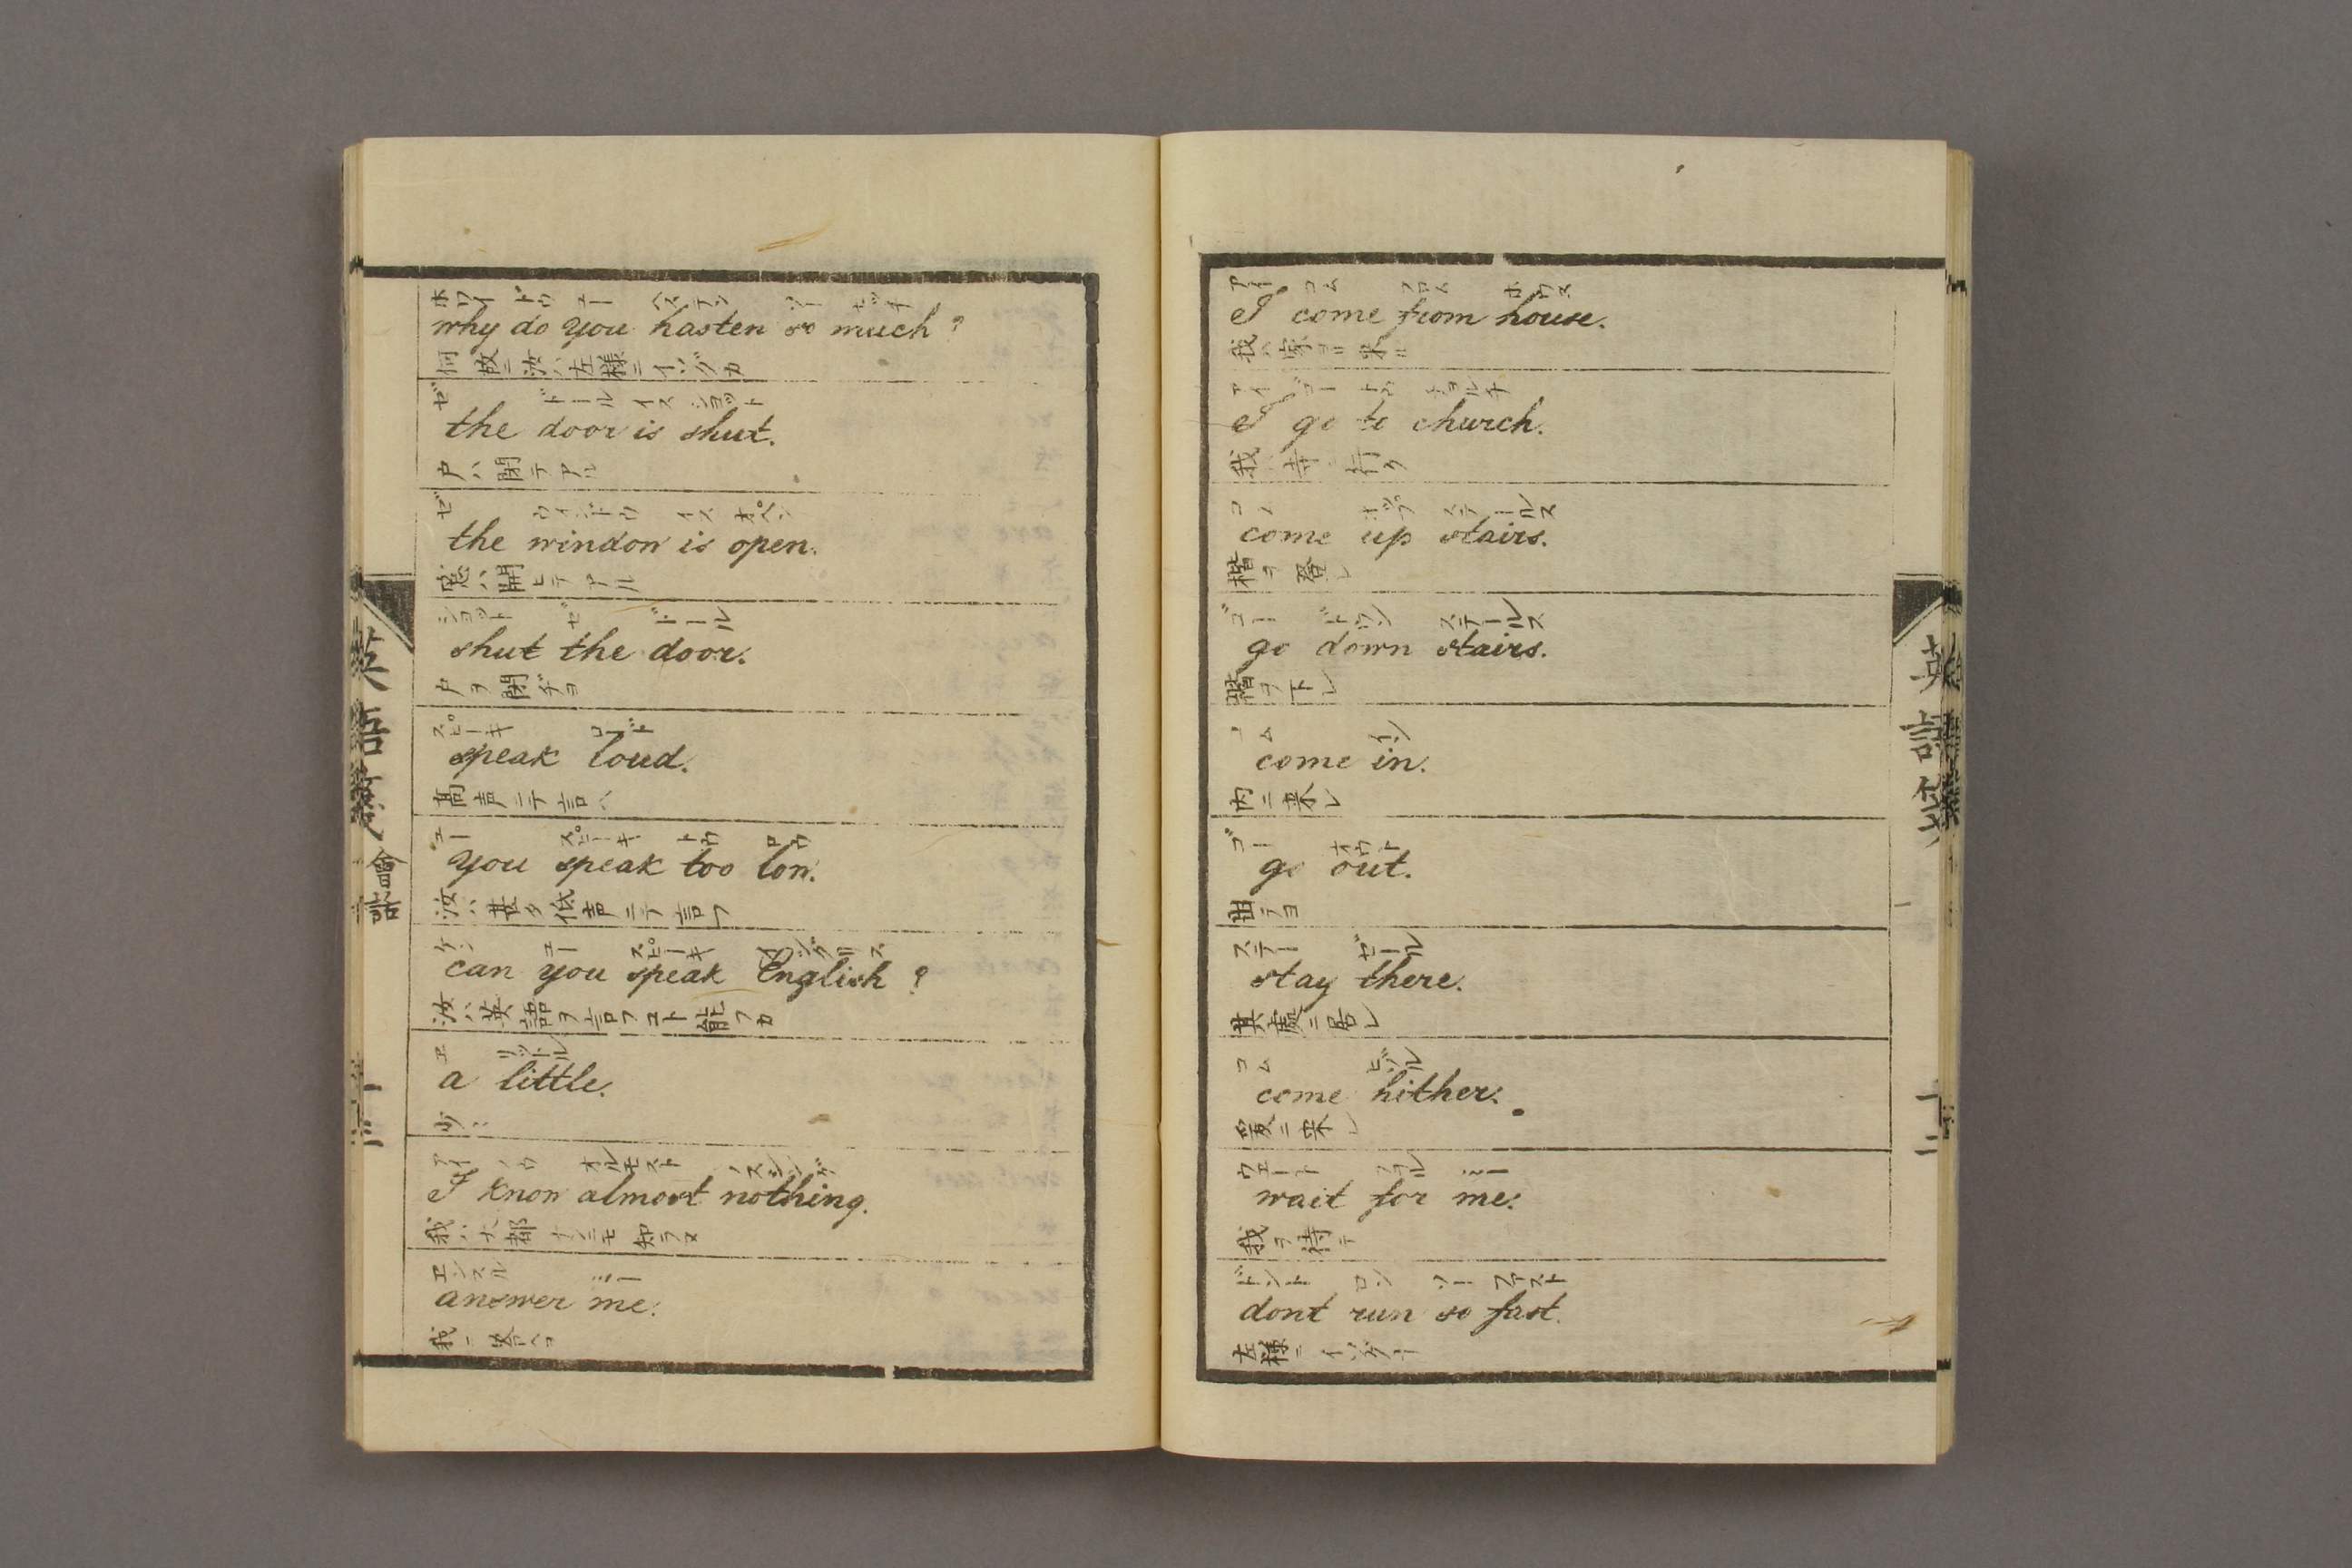 ホワイ ドウ ユー ヘステン ソー モッチ
why do you hasten so much?
何故ニ汝ハ左様ニイソグカ
ゼ ドール イス ショット
the door is shut.
戸ハ閉テアル
ゼ ウィンドウ イス オペン
the window is open.
窓ハ開ヒテアル
ショット ゼ ドール
shut the door.
戸ヲ閉ヂヨ
スピーキ ロード
speak loud.
高声ニテ言ヘ
ユー スピーキ トウ ロウ
you speak too low.
汝ハ甚タ低声ニテ言フ
ケン ユー スピーキ イングリス
can you speak English?
汝ハ英語ヲ言フコト能フカ
エ リットル
a little.
少シ
アイ ノウ オルモスト ノスシング
I know almost nothing.
我ハ大都ナニモ知ラヌ
エンスル ミー
answer me.
我ニ答ヘヨ
會話
アイ コム フロム ホウス
I come from house.
我ハ家ヨリ来ル
アイ ゴー トウ チョルチ
I go to church.
我ハ寺ニ行ク
コム オップ ステールス
come up stairs.
楷ヲ登レ
ゴー ドウン ステールス
go down stairs.
階ヲ下レ
コム イン
come in.
内ニ来レ
ゴー オウト
go out.
出テヨ
ステー ゼール
stay there.
其處ニ居レ
コム ヒヅル
come hither.
爰ニ来レ
ウェート フヲル ミー
wait for me.
我ヲ待テ
ドント ロン ソー ファスト
dont run so fast.
左様ニイソグナ